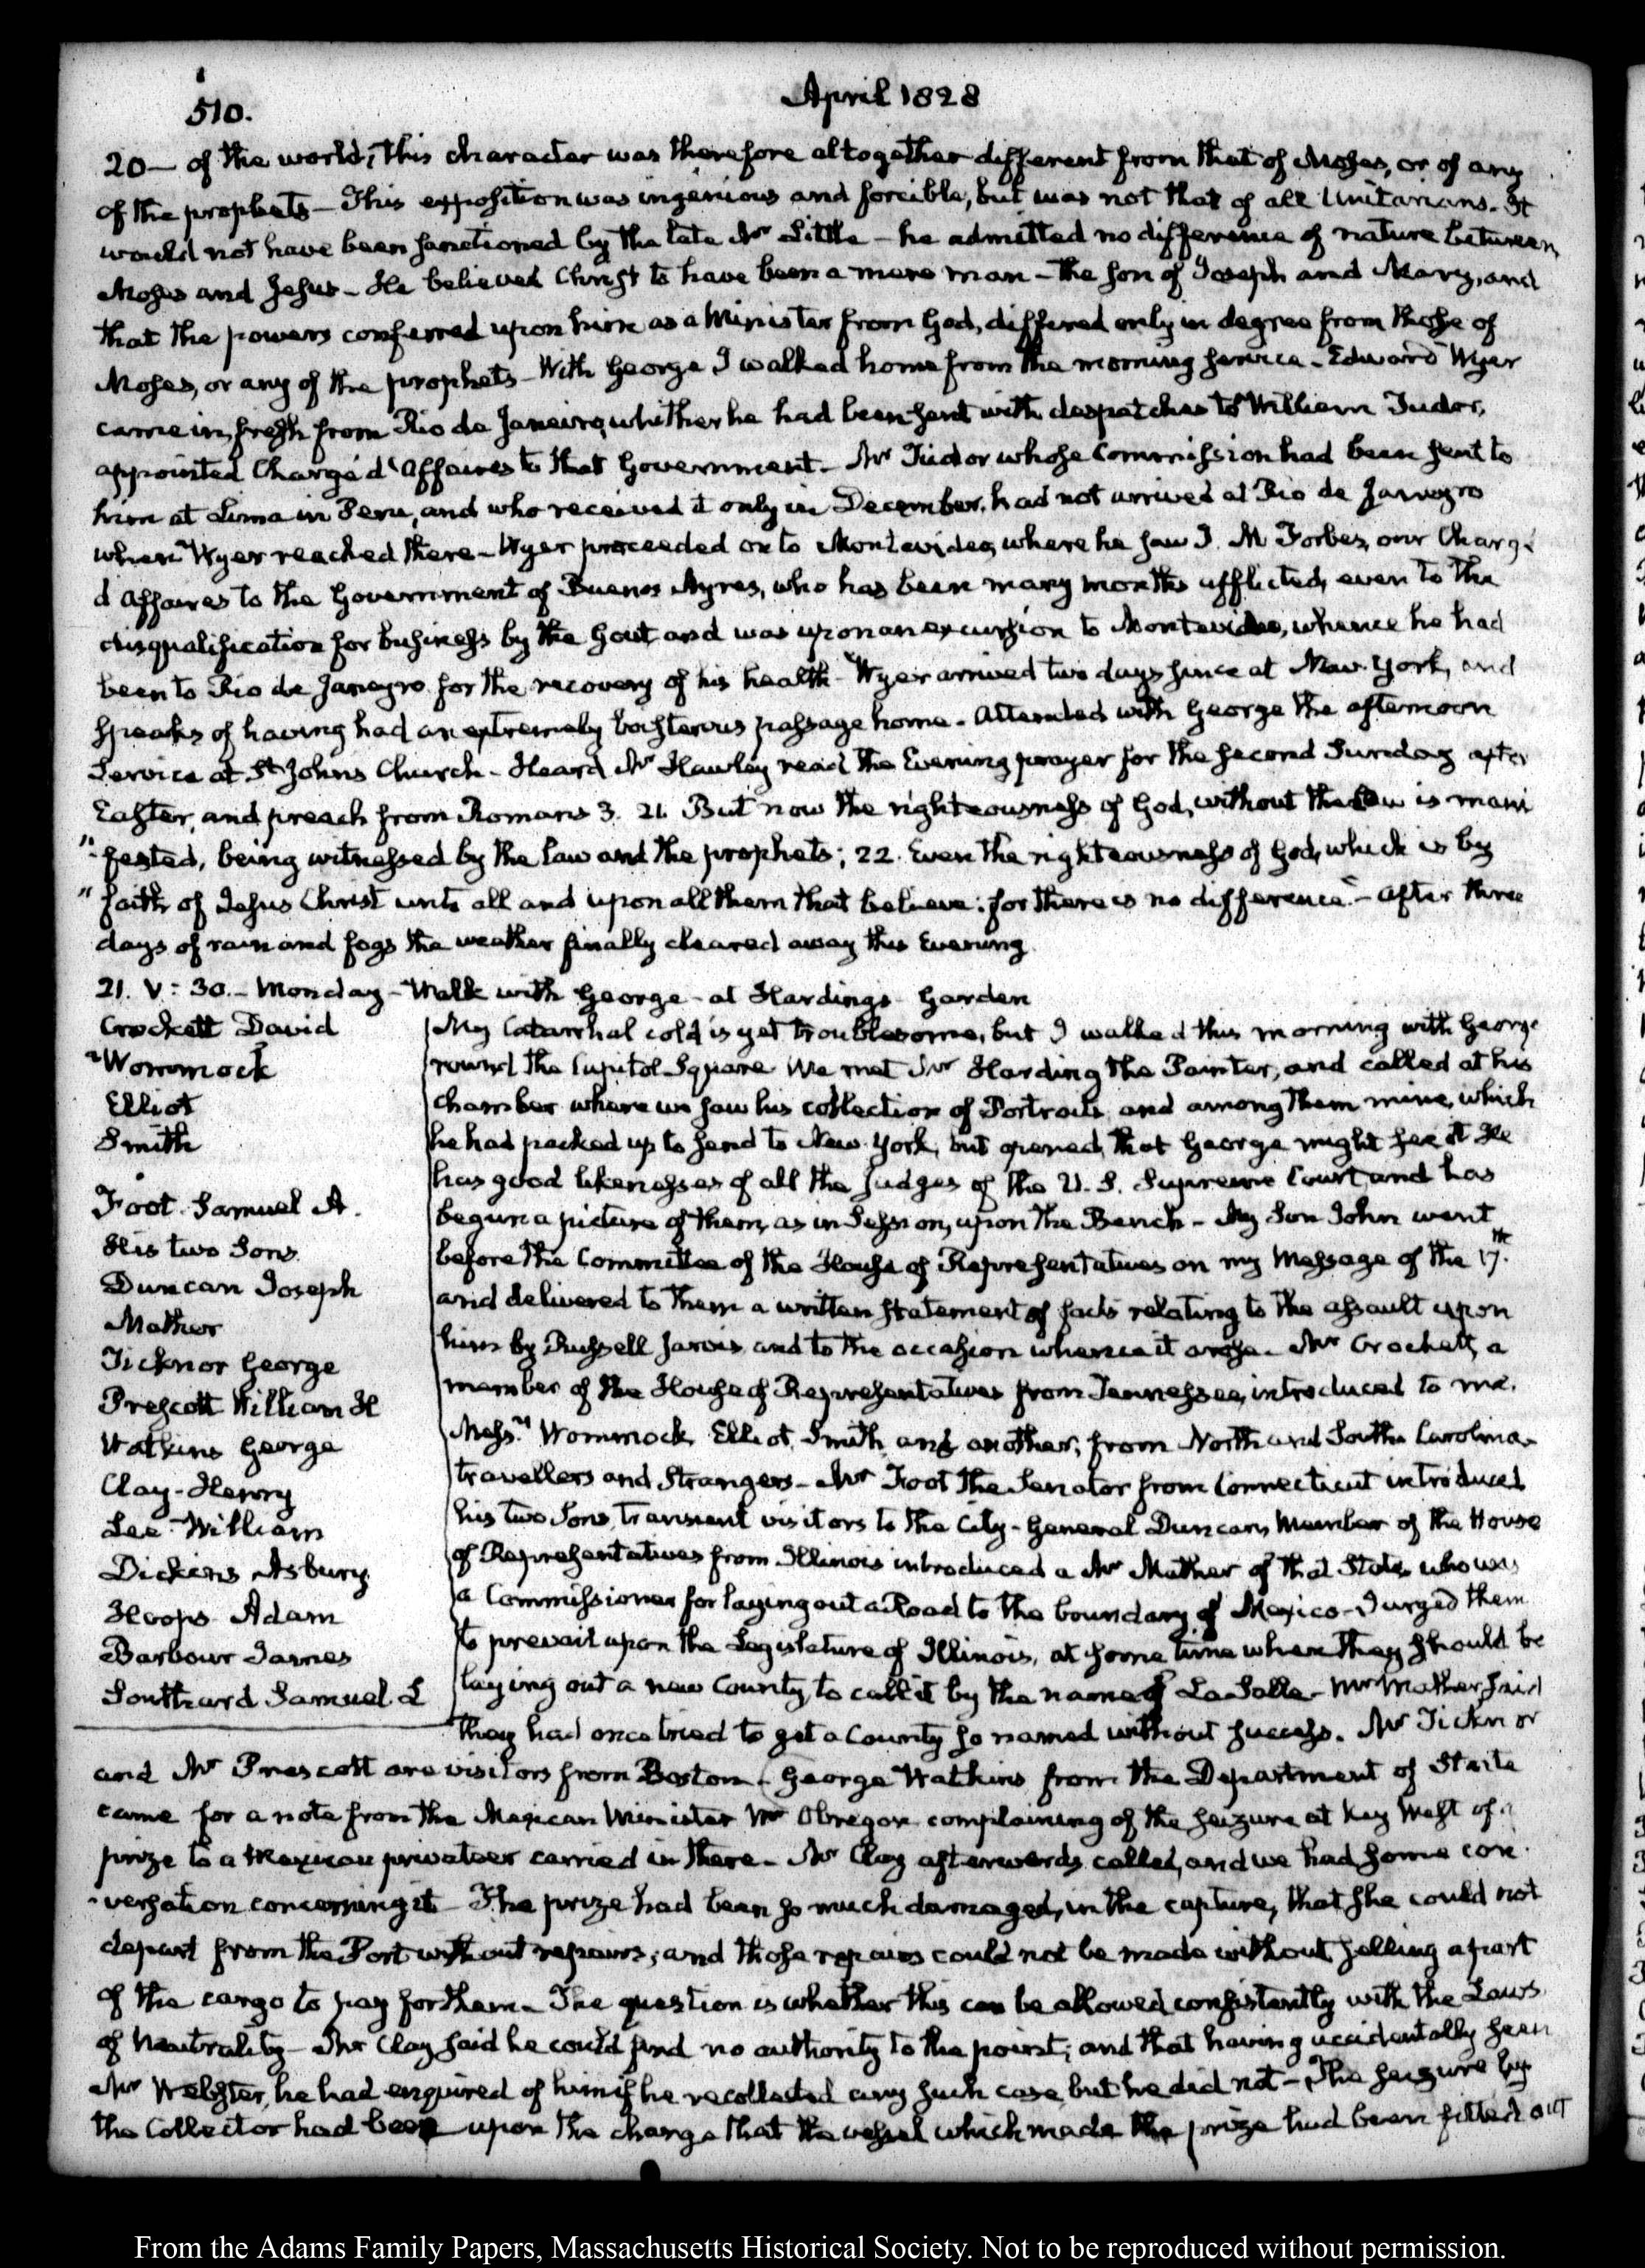 510.
April 1828
20— of the world; this character was therefore altogether different from that of Moses, or of any
of the prophets— This exposition was ingenious and forcible, but was not that of all Unitarians. It
would not have been sanctioned by the late Mr Little— he admitted no difference of nature between
Moses and Jesus— He believed Christ to have been a mere man— the son of Joseph and Mary, and
that the powers conferred upon him as a Minister from God, differed only in degree from those of
Moses, or any of the prophets— With George I walked home from the morning service. Edward Wyer
came in, fresh from Rio de Janeiro, whither he had been sent with despatches to William Tudor,
appointed Chargé d'Affaires to that Government. Mr Tudor whose Commission had been sent to
him at Lima in Peru, and who received it only in December, had not arrived at Rio de Janeyro
when Wyer reached there— Wyer proceeded on to Montevideo, where he saw J. M Forbes, our Chargé
d'Affaires to the Government of Buenos Ayres, who has been many months afflicted, even to the
disqualification for business by the Gout, and was upon an excursion to Montevideo, whence he had
been to Rio de Janeyro for the recovery of his health— Wyer arrived two days since at New York, and
speaks of having had an extremely boisterous passage home. Attended with George the afternoon
Service at St. Johns Church— Heard Mr Hawley read the Evening prayer for the second Sunday after
Easter, and preach from Romans 3. 21. But now the righteousness of God, without the Law is mani
"fested, being witnessed by the law and the prophets; 22. Even the righteousness of God, which is by
"faith of Jesus Christ unto all and upon all them that believe: for there is no difference"— After three
days of rain and fogs the weather finally cleared away this Evening.
21. V: 30.— Monday— Walk with George— at Hardings— Garden
Crockett David
Wommock
Elliot
Smith
Foot. Samuel A.
His two Sons
Duncan Joseph
Mather
Ticknor George
Prescott William H
Watkins George
Clay— Henry
Lee William
Dickins Asbury
Hoops Adam
Barbour James
Southard Samuel L
My Catarrhal cold is yet troublesome, but I walked this morning with George
round the Capitol Square. We met Mr Harding the Painter, and called at his
chamber where we saw his collection of Portraits and among them mine, which
he had packed up to send to New York, but opened, that George might see it. He
has good likenesses of all the Judges of the U. S. Supreme Court and has
begun a picture of them, as in Session, upon the Bench— My Son John went
before the Committee of the House of Representatives on my Message of the 17th.
and delivered to them a written statement of facts relating to the assault upon
him by Russell Jarvis and to the occasion whence it arose. Mr Crockett, a
member of the House of Representatives from Tennessee, introduced to me.
Messrs Wommock, Elliot, Smith and another, from North and South Carolina.
travellers and Strangers— Mr Foot the Senator from Connecticut introduced
his two Sons, transient visitors to the City— General Duncan, Member of the House
of Representatives from Illinois introduced a Mr Mather of that State, who was
a Commissioner for laying out a Road to the boundary of Mexico— I urged them
to prevail upon the Legislature of Illinois, at some time when they should be
laying out a new County, to call it by the name of La Salle— Mr Mather said
they had once tried to get a County so named without success. Mr Ticknor
and Mr Prescott are visitors from Boston. George Watkins from the Department of State
came for a note from the Mexican Minister Mr Obregon complaining of the seizure at Key West of a
prize to a Mexican privateer carried in there— Mr Clay afterwards called, and we had some con
versation concerning it— The prize had been so much damaged, in the capture, that she could not
depart from the Port without repairs; and those repairs could not be made without selling a part
of the cargo to pay for them— The question is whether this can be allowed consistently with the Laws
of Neutrality— Mr Clay said he could find no authority to the point; and that having accidentally seen
Mr Webster, he had enquired of him if he recollected any such case, but he did not— The seizure by
the Collector had been upon the charge that the vessel which made the prize had been fitted out
From the Adams Family Papers, Massachusetts Historical Society. Not to be reproduced without permission.